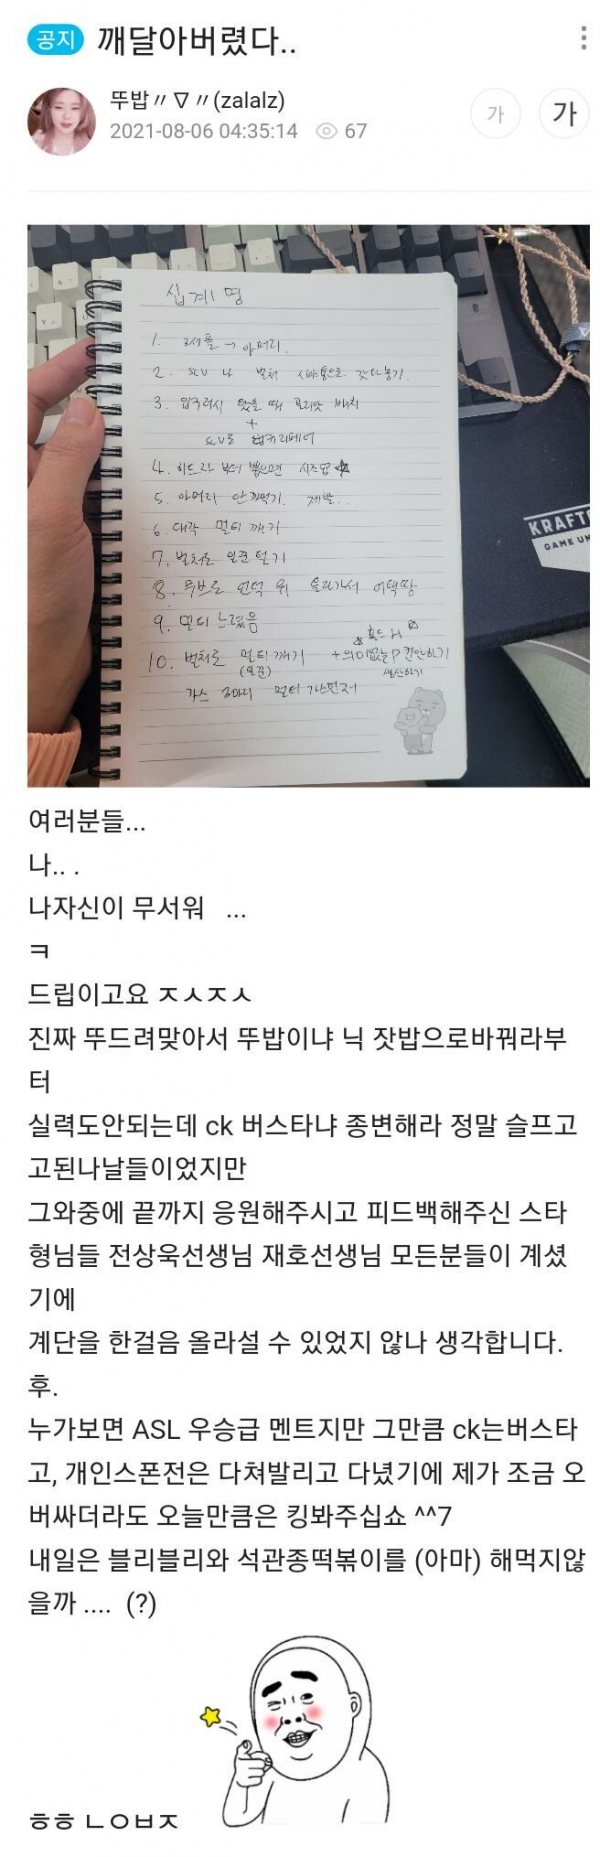 공지 깨달아버렸다..
뚜밥〃∇〃(zalalz)
2021-08-06 04:35:14 67
가 가
십계명
1. 2서플 → 아머리.
2. SCV 나 벌처 시야용으로 갖다놓기.
3. 입구러시 왔을 때 포리앗 배치
+
SCV로 리페어
4. 히드라 보여 뽑으면 시즈업
5. 아머리 안까먹기. 제발..
6. 대각 멀티 깨기
7. 벌처로 일꾼 털기
8. 무브로 언덕 위 올라가서 어택땅
9. 멀티 느렸음
홀드 H
10. 벌처로 멀티 깨기 + 의미없는 P 컨안하기
(일꾼) 생산하기
가스 3마리 멀티 가스먼저
KRAFT
GAME UN
여러분들...
나.. .
나자신이 무서워 ...
ㅋ
드립이고요 ㅈㅅㅈㅅ
진짜 뚜드려맞아서 뚜밥이냐 닉 잣밥으로바꿔라부
터
실력도안되는데 ck 버스타냐 종변해라 정말 슬프고
고된나날들이었지만
그와중에 끝까지 응원해주시고 피드백해주신 스타
형님들 전상욱선생님 재호선생님 모든분들이 계셨
기에
계단을 한걸음 올라설 수 있었지 않나 생각합니다.
후.
누가보면 ASL 우승급 멘트지만 그만큼 ck는버스타
고, 개인스폰전은 다쳐발리고 다녔기에 제가 조금 오
버싸더라도 오늘만큼은 킹봐주십쇼 ^^7
내일은 블리블리와 석관종떡볶이를 (아마) 해먹지않
을까 .... (?)
ㅎㅎ ㄴㅇㅂㅈ